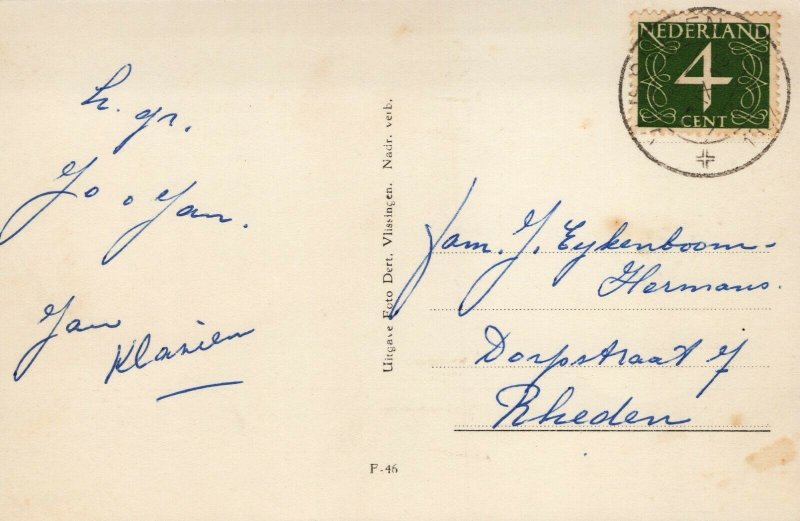 h. gr.
Jo o Jan.
Jan
Klasien
Uitgave Foto Dert, Vlissingen. Nadr. verb.
F-46
NEDERLAND
4
CENT
Fam. J. Eykenboom-
Hermans.
Dorpstraat 7
Rheden